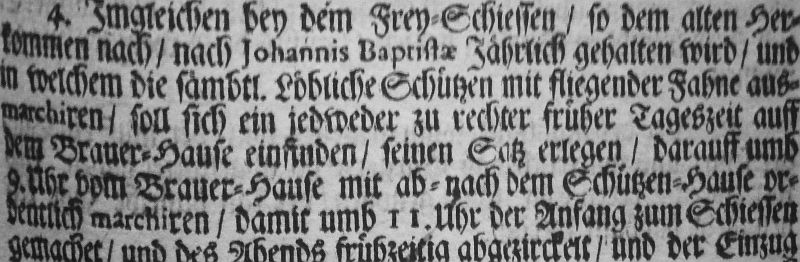 4. Imgleichen bey dem Frey-Schiessen / so dem alten Her-
kommen nach / nach Johannis Baptistæ Jährlich gehalten wird / und
in welchem die sämbtl. Löbliche Schützen mit fliegender Fahne aus-
marchiren / soll sich ein jedweder zu rechter früher Tageszeit auff
dem Brauer-Hause einfinden / seinen Satz erlegen / darauff umb
9. Uhr vom Brauer-Hause mit ab- nach dem Schützen-Hause or-
dentlich marchiren / damit umb 11. Uhr der Anfang zum Schiessen
gemachet / und des Abends frühzeitig abgezirckelt / und der Einzug